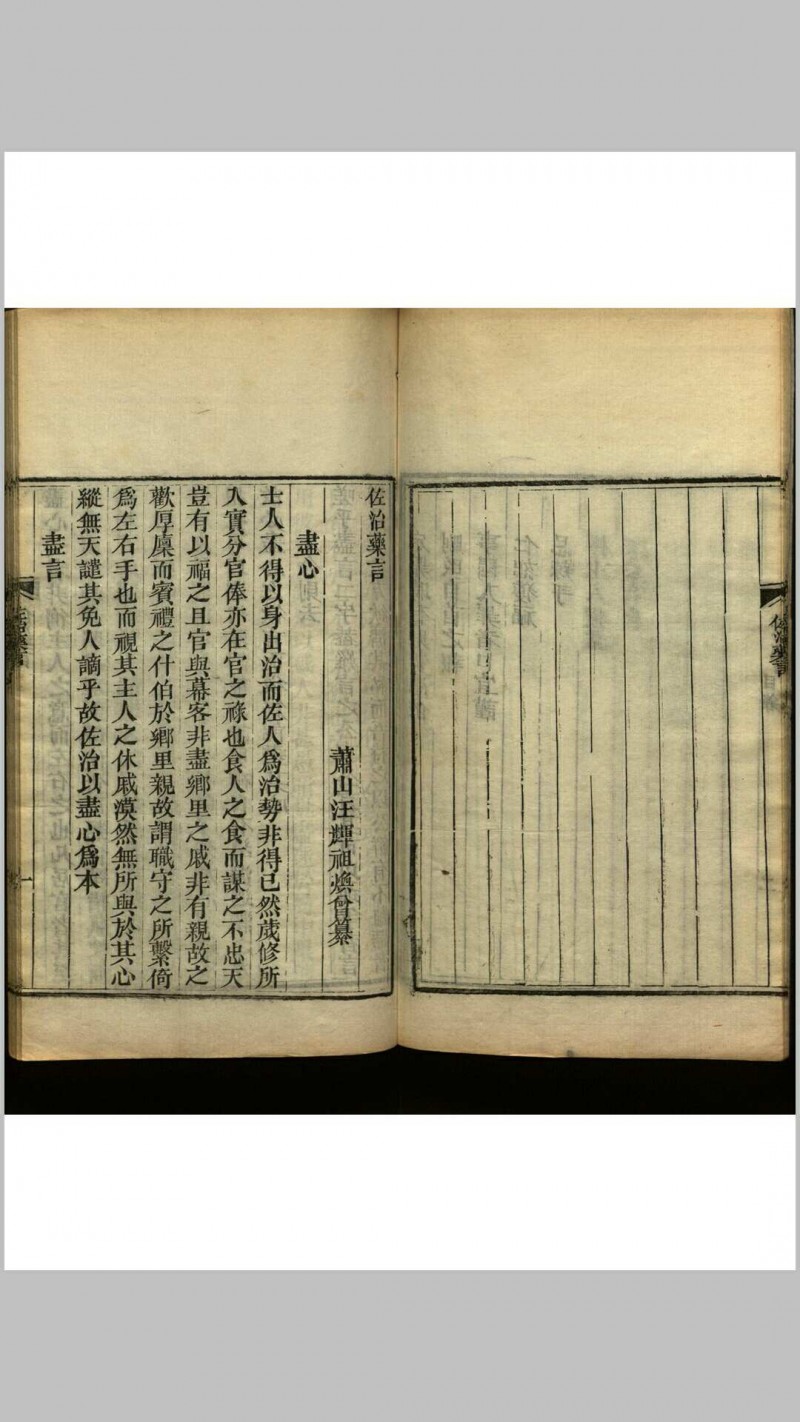 佐治藥言
佐治藥言
蕭山汪輝祖煥曾纂
盡心
士人不得以身出治而佐人爲治勢非得已然歲修所
入實分官俸亦在官之祿也食人之食而謀之不忠天
豈有以福之且官與幕客非盡鄉里之戚非有親故之
歡厚廩而賓禮之什伯於鄉里親故謂職守之所繫倚
爲左右手也而視其主人之休戚漠然無所與於其心
縱無天譴其免人謫乎故佐治以盡心爲本
盡言
佐治藥言
一